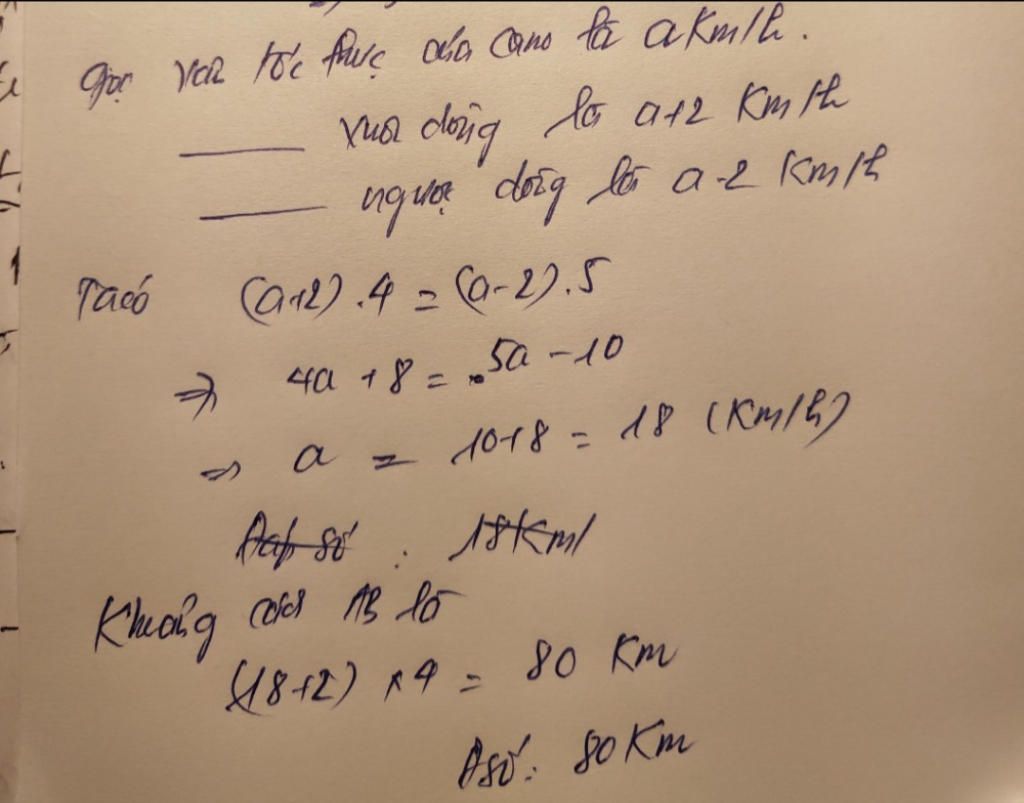 Gọi vận tốc thực của cano là a Km/h.
____ xuôi dòng là a+2 Km/h
____ ngược dòng là a-2 Km/h
Ta có (a+2).4 = (a-2).5
=> 4a + 8 = 5a - 10
=> a = 10+8 = 18 (Km/h)
Đáp số : 18Km/
Khoảng cách AB là
(18+2) x 4 = 80 Km
Đ số: 80 Km